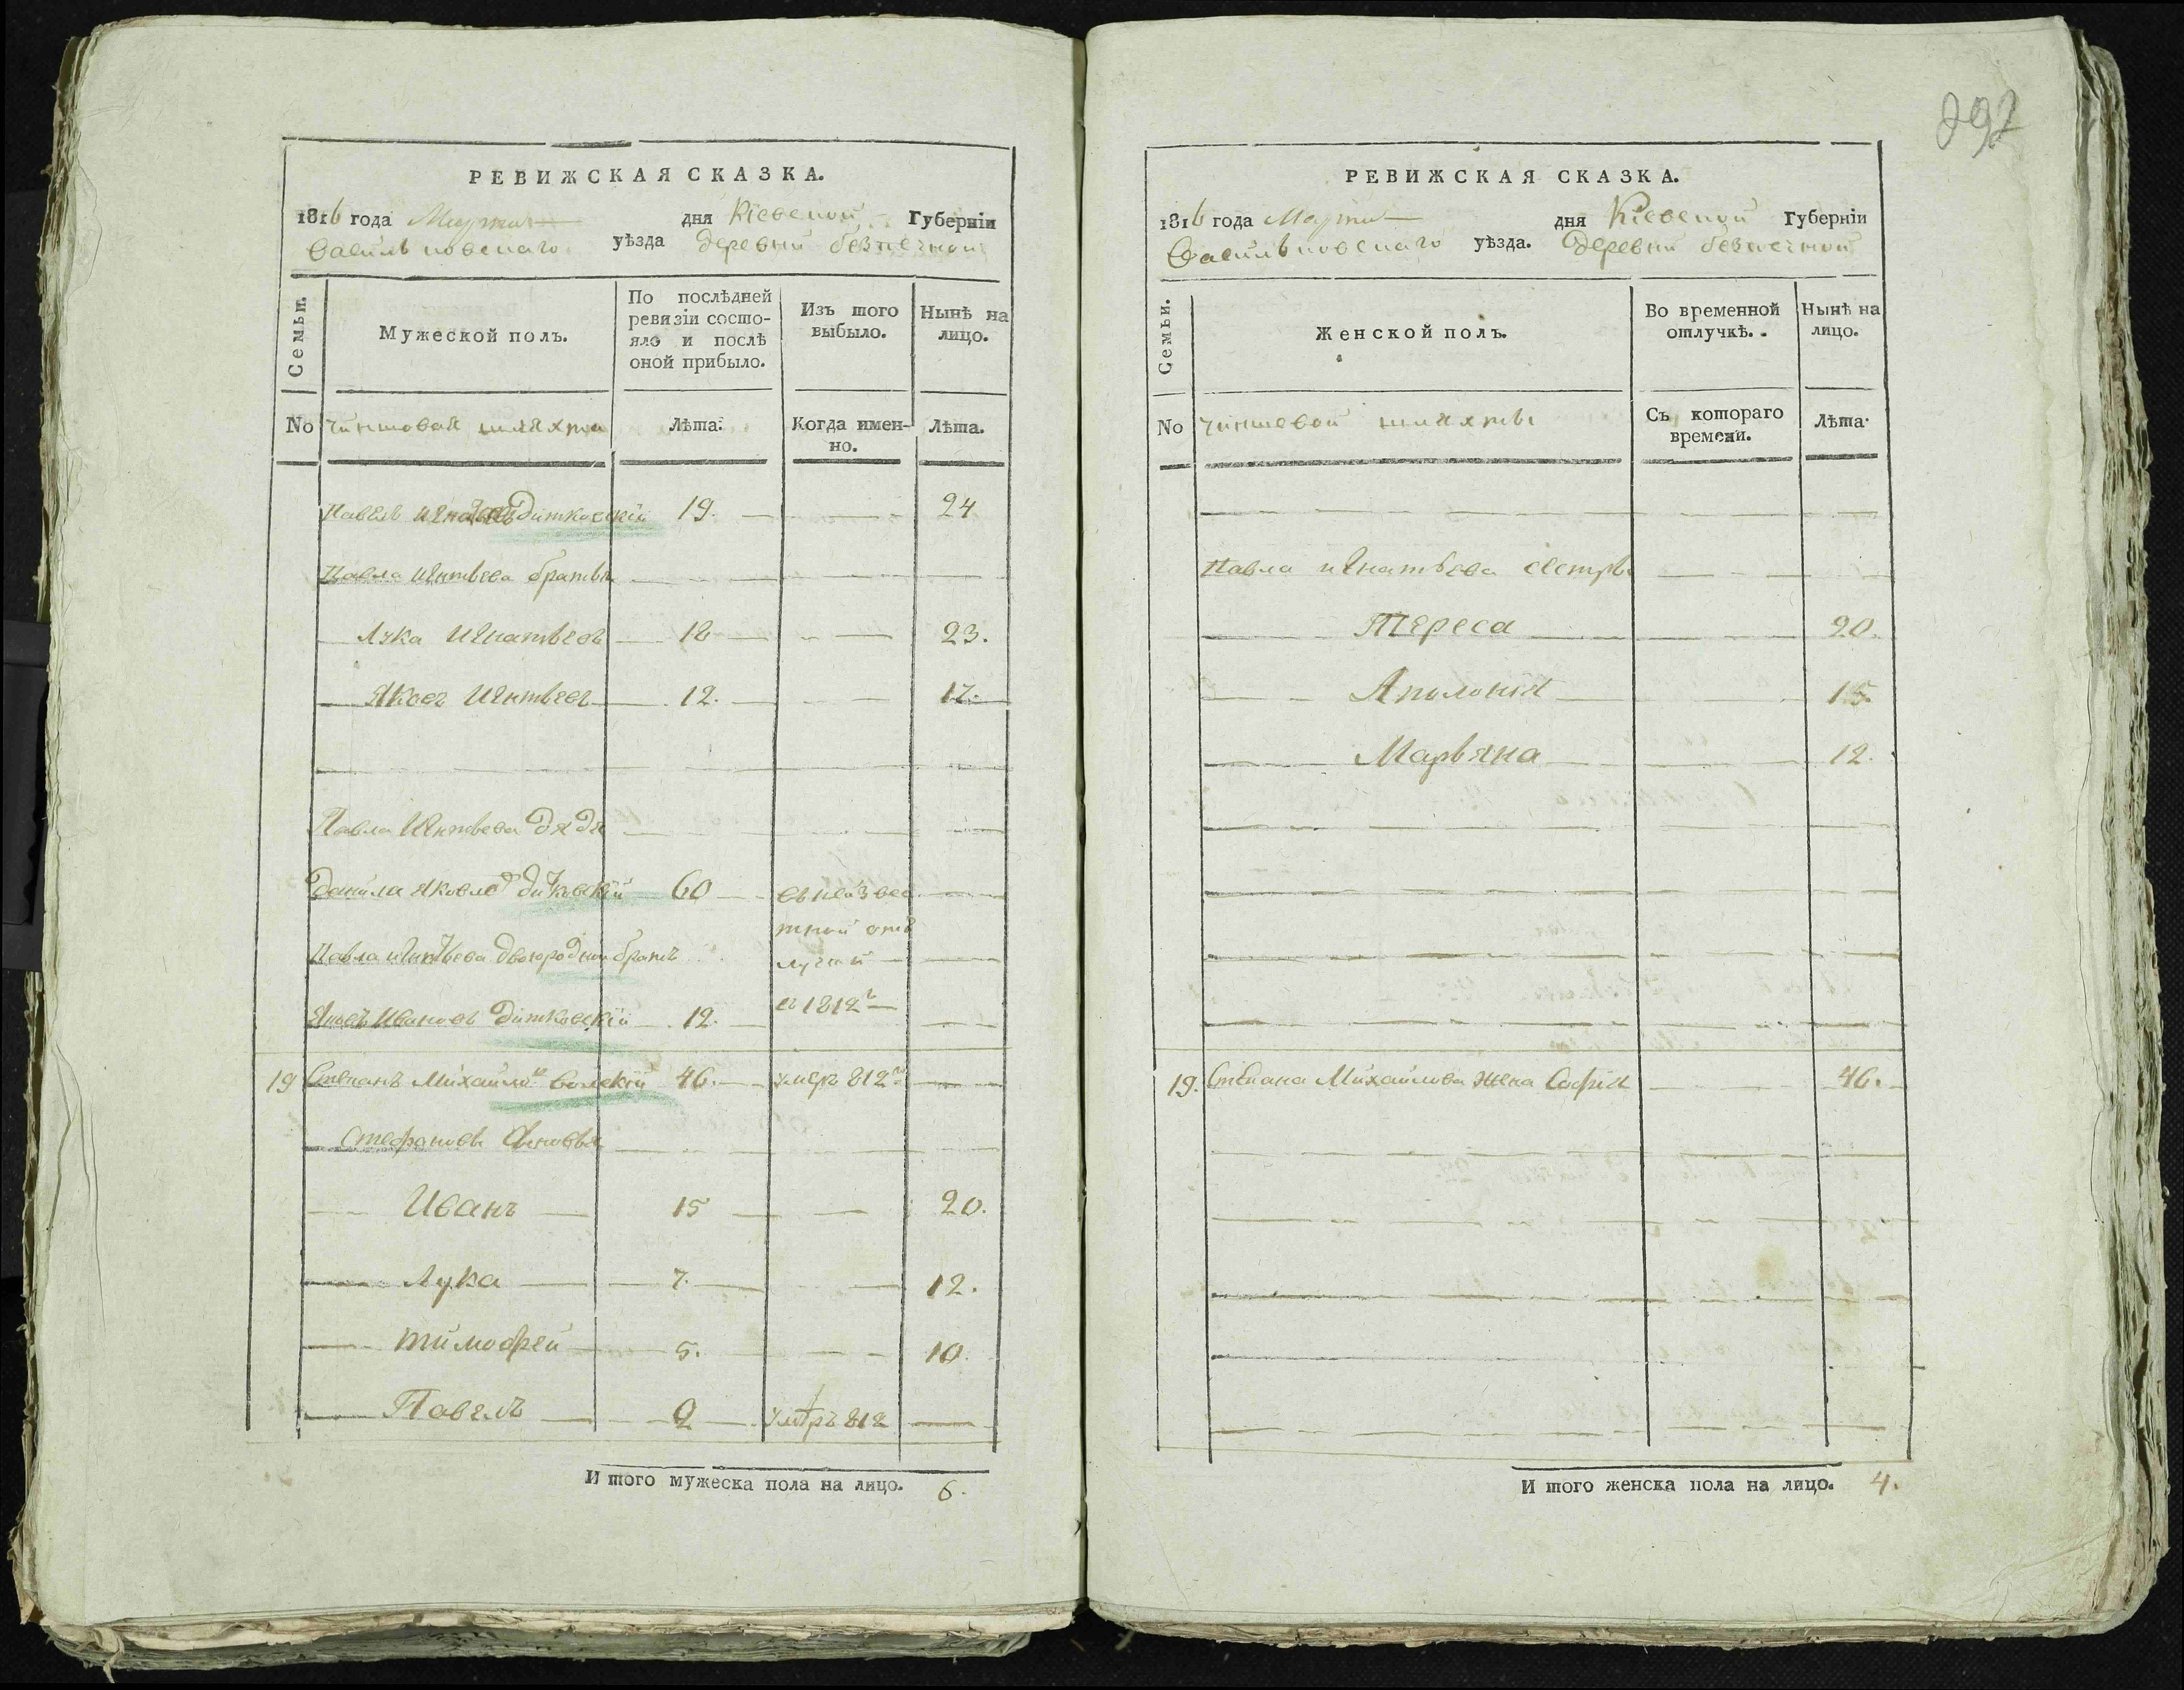 292
РЕВИЖСКАЯ СКАЗКА.
1816 года Марта дня Кіевской Губерніи
Васильковскаго уѣзда деревни безпечной
Семьи.
Мужеской полъ.
По послѣдней ревизіи состо-
яло и послѣ оной прибыло.
Изъ того выбыло.
Нынѣ на лицо.
No чиншовая шляхта Лѣта. Когда имен-
но. Лѣта.
Павелъ Дитковскій 19. 24
Павла Игнтьева братья
Лука Игнатьевъ 18 23.
Яковъ Игнтьевъ 12. 17.
Павла Игнтьева дядя
Данила Яковлевъ Дитковскій 60 въ неизвес
тной отъ
Павла Игнтьева двоюродной братъ лучкѣ
Яковъ Ивановъ Дитковскій 12. въ 1812г
19 Степанъ Михайловъ 46. умеръ 812г
Стефановы сыновья
Иванъ 15 20.
Лука 7. 12.
тимофей 5. 10.
Павелъ 2 умеръ 812
И того мужеска пола на лицо. 6.
РЕВИЖСКАЯ СКАЗКА.
1816 года Марта дня Кіевской Губерніи
Васильковскаго уѣзда. деревни безпечной
Семьи.
Женской полъ.
Во временной отлучкѣ.
Нынѣ на лицо.
No чиншевой шляхты Съ котораго
времени. Лѣта.
Павла игнатьева сестры
Тереса 20.
Аполонія 15.
Марьяна 12.
19. Степана Михайлова жена Софія 46.
И того женска пола на лицо. 4.